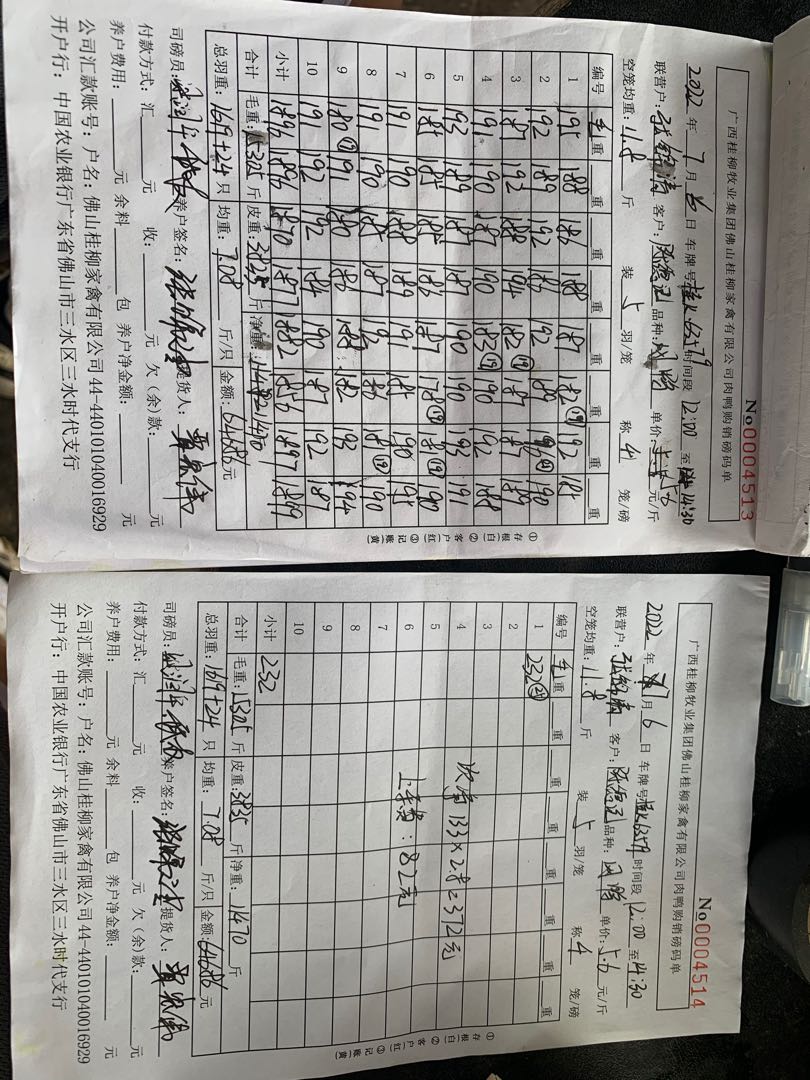 广西桂柳牧业集团佛山桂柳家禽有限公司肉鸭购销磅码单
No0004513
2022年7月6日 车牌号 时间段12:00至14:30
联营户: 客户: 品种: 单价:5.6元/斤
空笼均重:11.8斤 装5羽/笼 称4笼/磅
编号 毛重 重 重 重 重 重 重 重
1 195 188 186 188 187 182⑲ 192 185
2 192 190 192 186 192 189 190
3 187 192 188 194 182⑲ 187 187 189
4 191 190 187 190 183⑲ 190 192 188
5 193 189 187 187 190 190 193 191
6 185 185 185 186 187 178⑱ 181⑲ 190
7 191 190 188 189 191 185 190 195
8 191 190 185 187 192 186 181⑲ 190
9 191 190 186 188 182 193 194
10 191 192 192 184 190 187 192 187
小计 1896 1896 1870 1877 1882 1856 1897 1899
合计 毛重:15305斤 皮重:3835斤 净重:11470
总羽重:1619+24只 均重:7.08斤/只 金额:64686元
司磅员: 养户签名: 提货人:
付款方式:汇 元 收: 元 欠(余)款: 元
养户费用: 元 余料 包 养户净金额: 元
公司汇款账号:户名:佛山桂柳家禽有限公司44-440101040016929
开户行:中国农业银行广东省佛山市三水区三水时代支行
①存根(白)②客户(红)③记账(黄)
广西桂柳牧业集团佛山桂柳家禽有限公司肉鸭购销磅码单
No0004514
2022年7月6日 车牌号 时间段12:00至14:30
联营户: 客户: 品种: 单价:5.6元/斤
空笼均重:11.8斤 装5羽/笼 称4笼/磅
编号 毛重 重 重 重 重 重 重 重
1 232㉔
2
3
4 133×2.8=372元
5
6 82元
7
8
9
10
小计 232
合计 毛重:15305斤 皮重:3835斤 净重:11470斤
总羽重:1619+24只 均重:7.08斤/只 金额:64686元
司磅员: 养户签名: 提货人:
付款方式:汇 元 收: 元 欠(余)款: 元
养户费用: 元 余料 包 养户净金额: 元
公司汇款账号:户名:佛山桂柳家禽有限公司44-440101040016929
开户行:中国农业银行广东省佛山市三水区三水时代支行
①存根(白)②客户(红)③记账(黄)